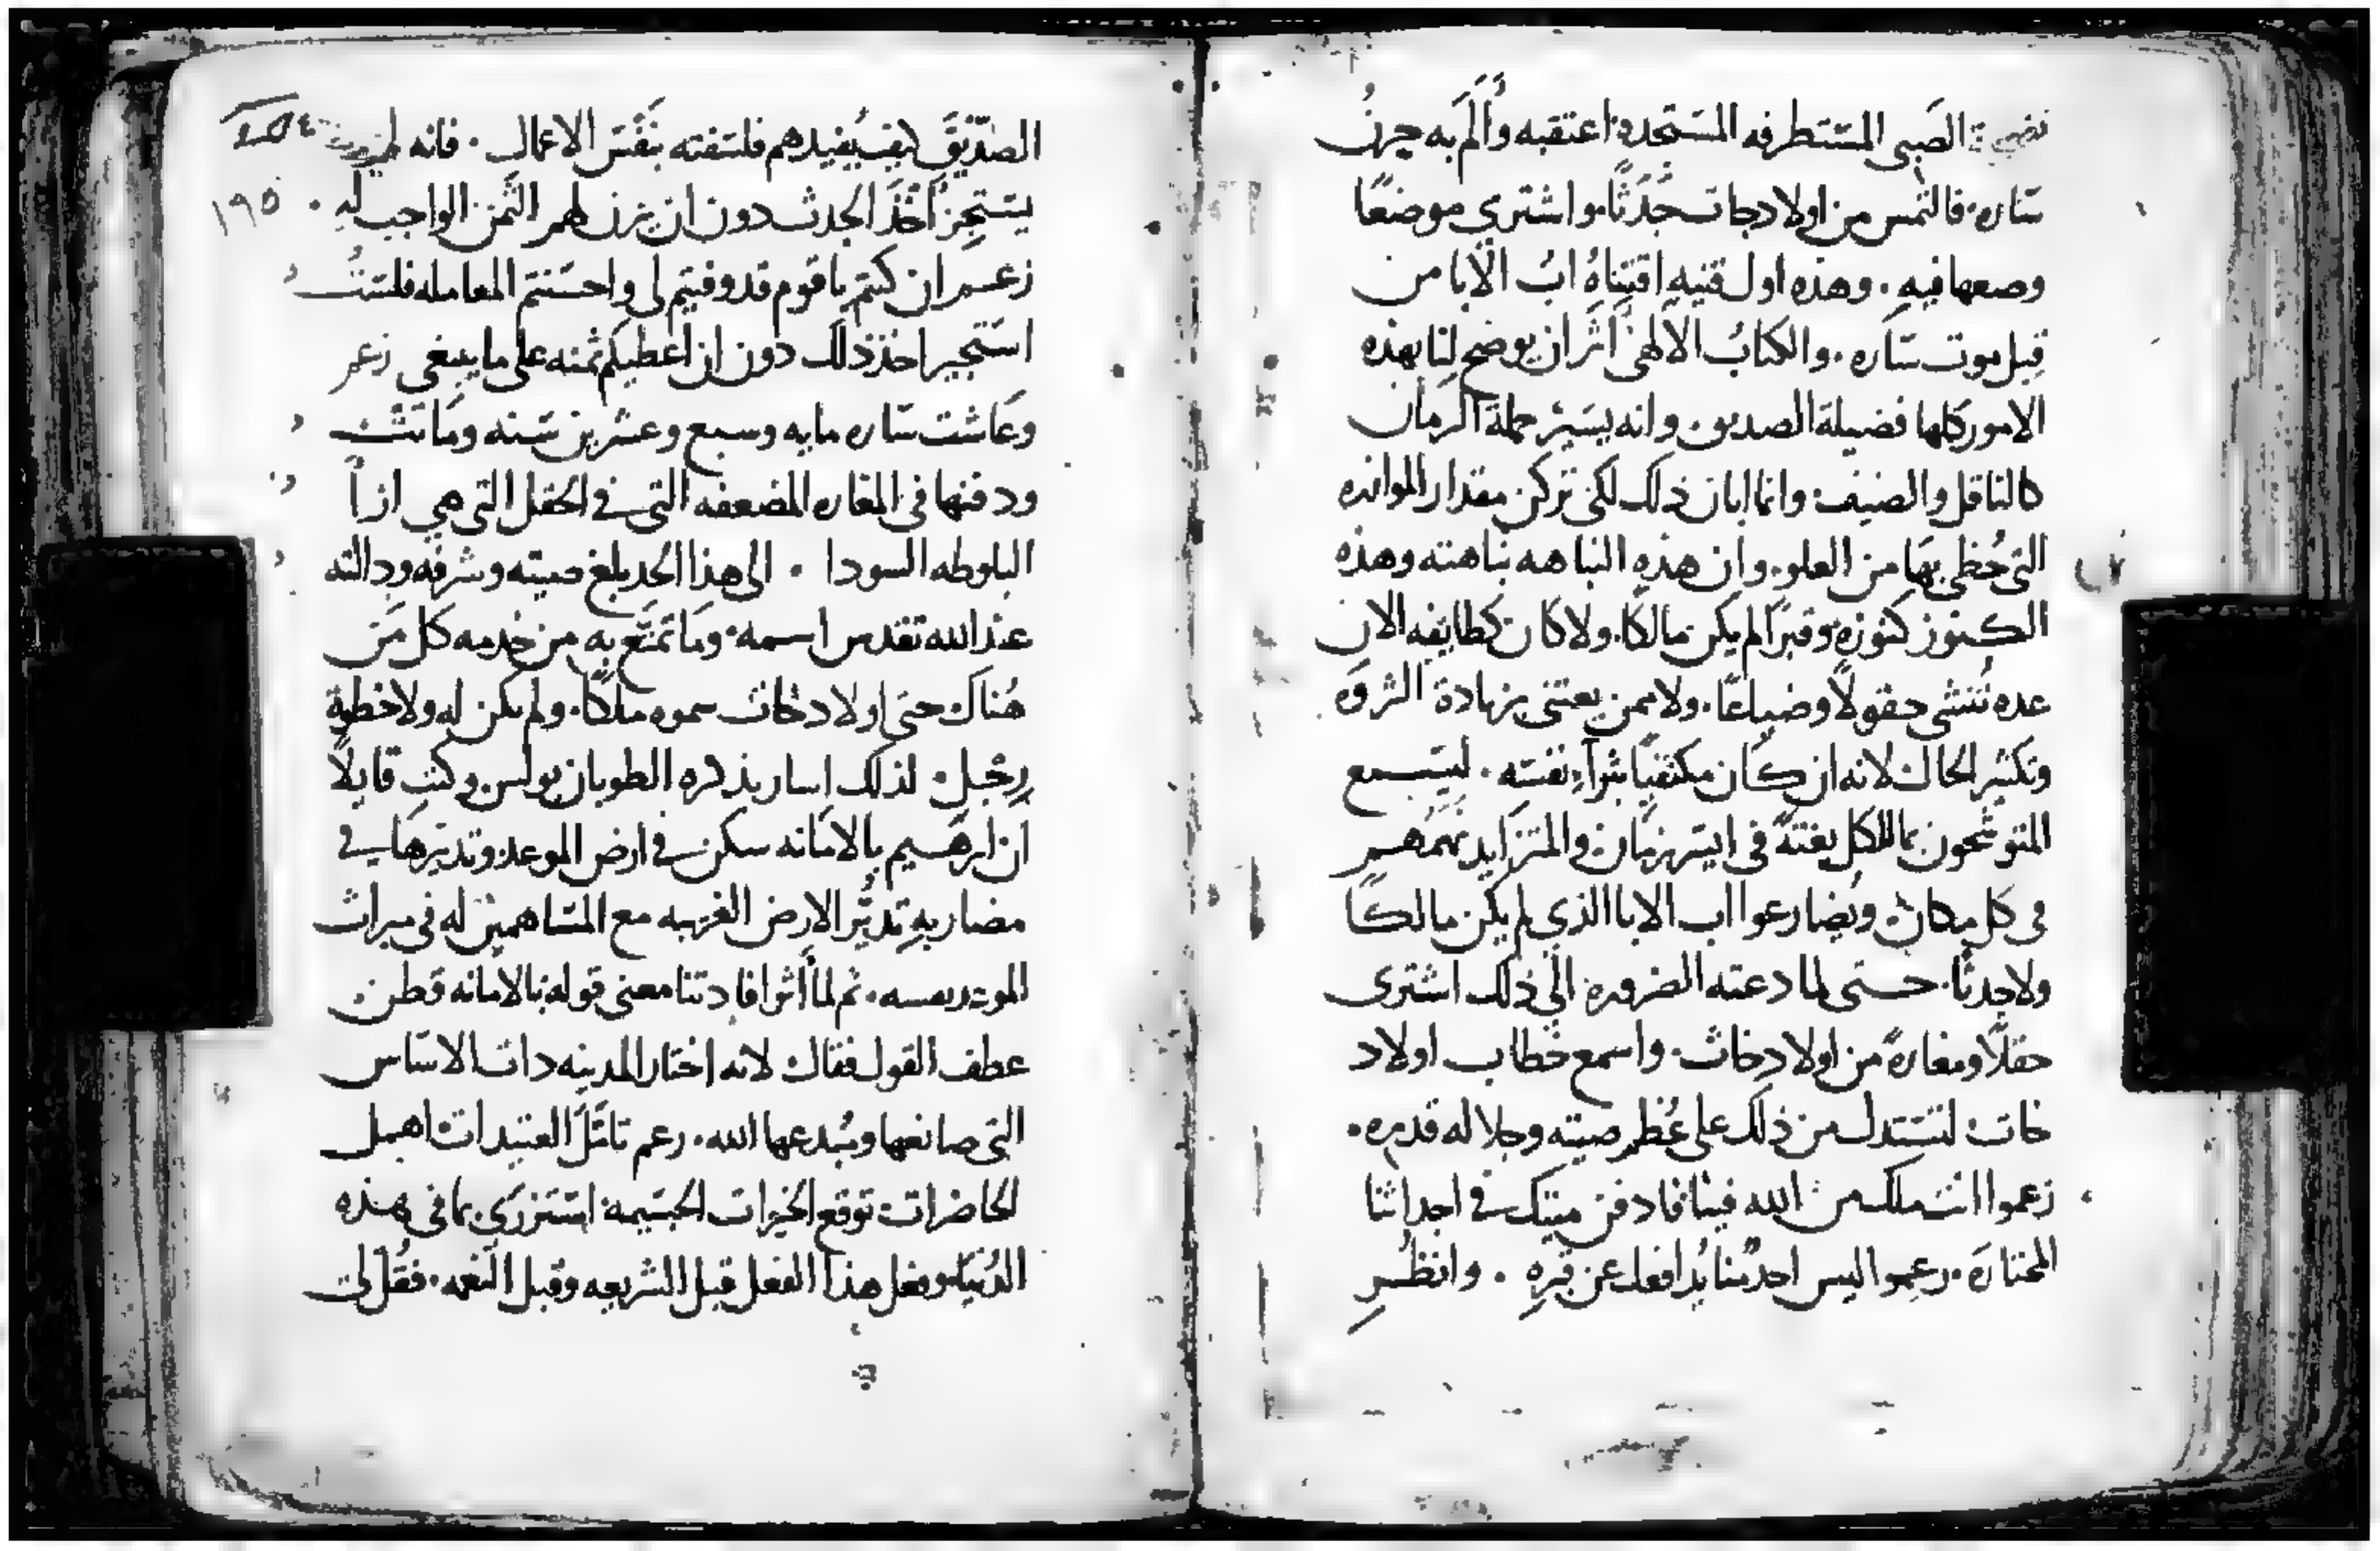 الصبى المستطرفه المستجده اعتقبه والَم به حزن
ساره. فالتمس من اولاد حاث جَدَثًا. واشترى موضعًا
وصعها فيه. وهذه اول قنيه اقتناهُ ابُ الابا من
قبل موت ساره. والكتابُ الالهىُ اثر ان يوضح لنا بهذه
الامور كلها فضيلة الصديق وانه يسير جملة الزمان
كالناقل والضيف وانما ابان ذلك لكى تركن مقدار الموازره
التى حُظى بها من العلو. وان هذه النباهه نباهته وهذه
الكنوز كنوزه وقبرًا لم يكن مالكًا. ولا كان كطايفه الان
عده تُنشى حقولاً وضياعًا. ولا ممن يعتنى بزيادة الثروه
وتكثير الحال لانه ان كان مكتفيًا بثراء نفسه. ليسمع
المتوشحون بما للكل بغتةً فى ايسر زمان والمتزايد نهمهم
فى كل مكان ويضارعوا اب الابا الذي لم يكن مالكًا
ولا جدثًا. حتى لما دعته الضروره الى ذلك اشترى
حقلاً ومغارةً من اولاد حاث. واسمع خطاب اولاد
حاث لتستدل من ذلك على عُظم صيته وجلاله قدره.
زعموا انت ملك من الله فينا فادفن ميتك فى اجداثنا
المختاره. زعموا ليس احدٌ منا يدافعك عن قبره. وانظر
الصدّيقَ كيف يُفيدهم فلسفته بنفَس الاعمال. فانه لم
يستجز اَخْذَ الجدث دون ان يزن لهم الثمن الواجب له.
زعم ان كنتم يا قوم قد وفيتم لى واحسنتم المعامله فلستُ
استجيز اخذ ذلك دون ان اعطيكم ثمنه على ما ينبغى زعم
وعاشت ساره مايه وسبع وعشرين سنه وماتت
ودفنها فى المغاره المضعفه التى فى الحقل التى هى ازاَ
البلوطه السودا. الى هذا الحد بلغ صيته وشرفه ودالته
عند الله تقدس اسمه. وما تمتَّع به من خدمه كل من
هُناك حتى اولاد حاث سموه ملكًا. ولم يكن له ولا خطوة
رِجْلٍ. لذلك اسار بذكره الطوبان بولس وكتب قايلاً
ان ابرهيم بالامانه سكن فى ارض الموعد وتديّرها فى
مضاربه تديُّر الارض الغريبه مع المساهمين له فى ميراث
الموعد بعينه. ثم لما اَثر افادتنا معنى قوله بالامانه قطن.
عطف القول فقال لانه اختار المدينه ذات الاساس
التى صانعها ومُبدعها الله. زعم تاملَ العتيدات اهمل
الحاضرات توقع الخيرات الجسيمة استزرى بما فى هذه
الدُنيا. وفعل هذا الفعل قبل الشريعه وقبل النعمه. فقُل لى
١٩٥